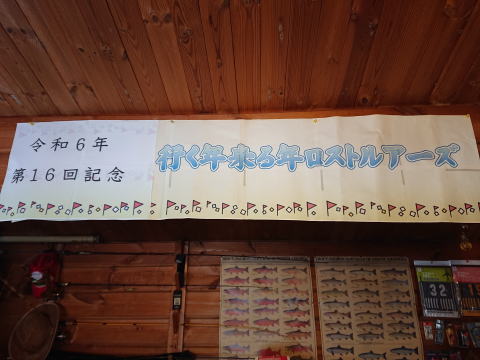 令和6年
第16回記念
行く年来る年ロストルアーズ
32